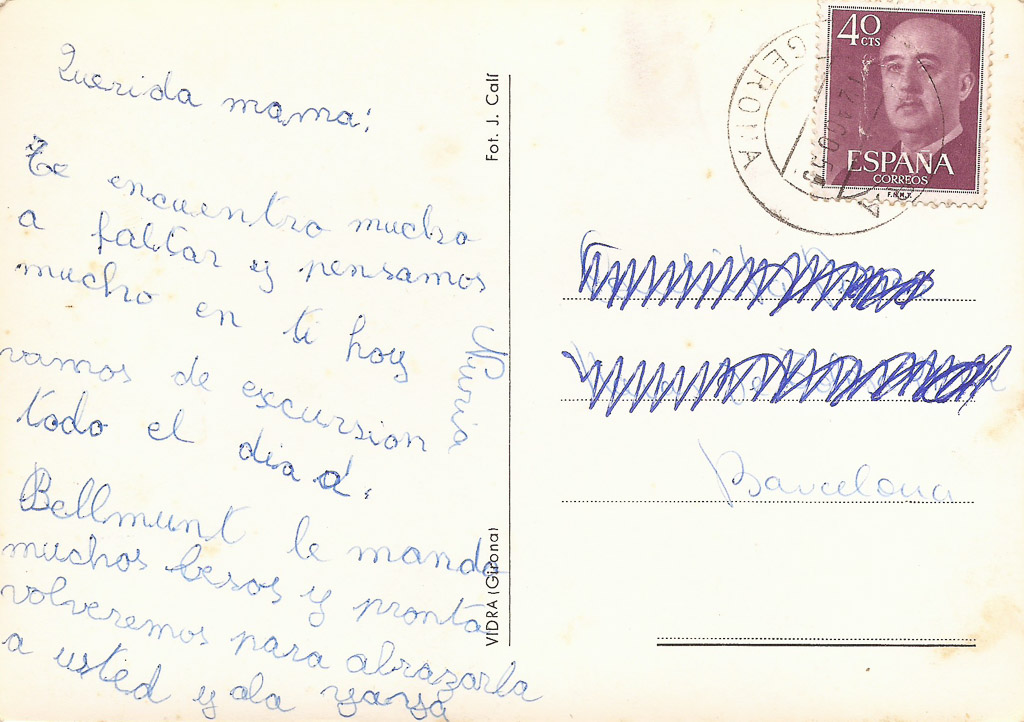 Querida mama:
Te encuentro mucho
a faltar y pensamos
mucho en ti hoy
vamos de excursion
todo el dia a
Bellmunt le manda
muchos besos y pronta
volveremos para abrazarla
a usted y ala yaya
Nuria
Fot. J. Calí
VIDRA (Girona)
40
CTS
ESPAÑA
CORREOS
F.N.M.T.
GERONA
Barcelona